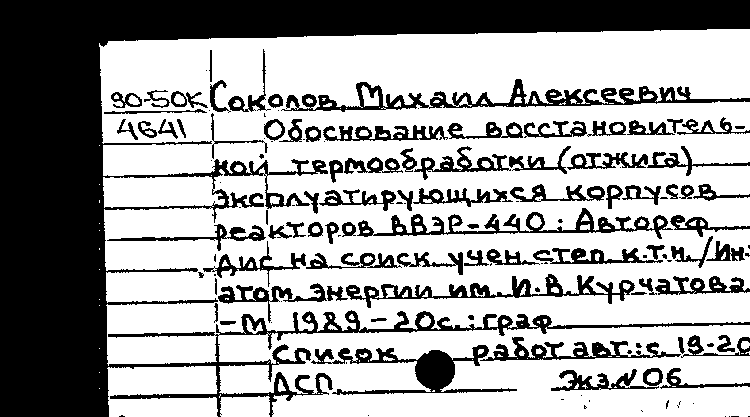 90-50К Соколов, Михаил Алексеевич
4641 Обоснование восстановитель-
ной термообработки (отжига)
эксплуатирующихся корпусов
реакторов ВВЭР-440 : Автореф.
дис. на соиск. учен. степ. к.т.н. / Ин-
атом. энергии им. И.В. Курчатова.
- М., 1989. - 20с. : граф.
Список работ авт.: с. 19-20
ДСП. Экз. N 06